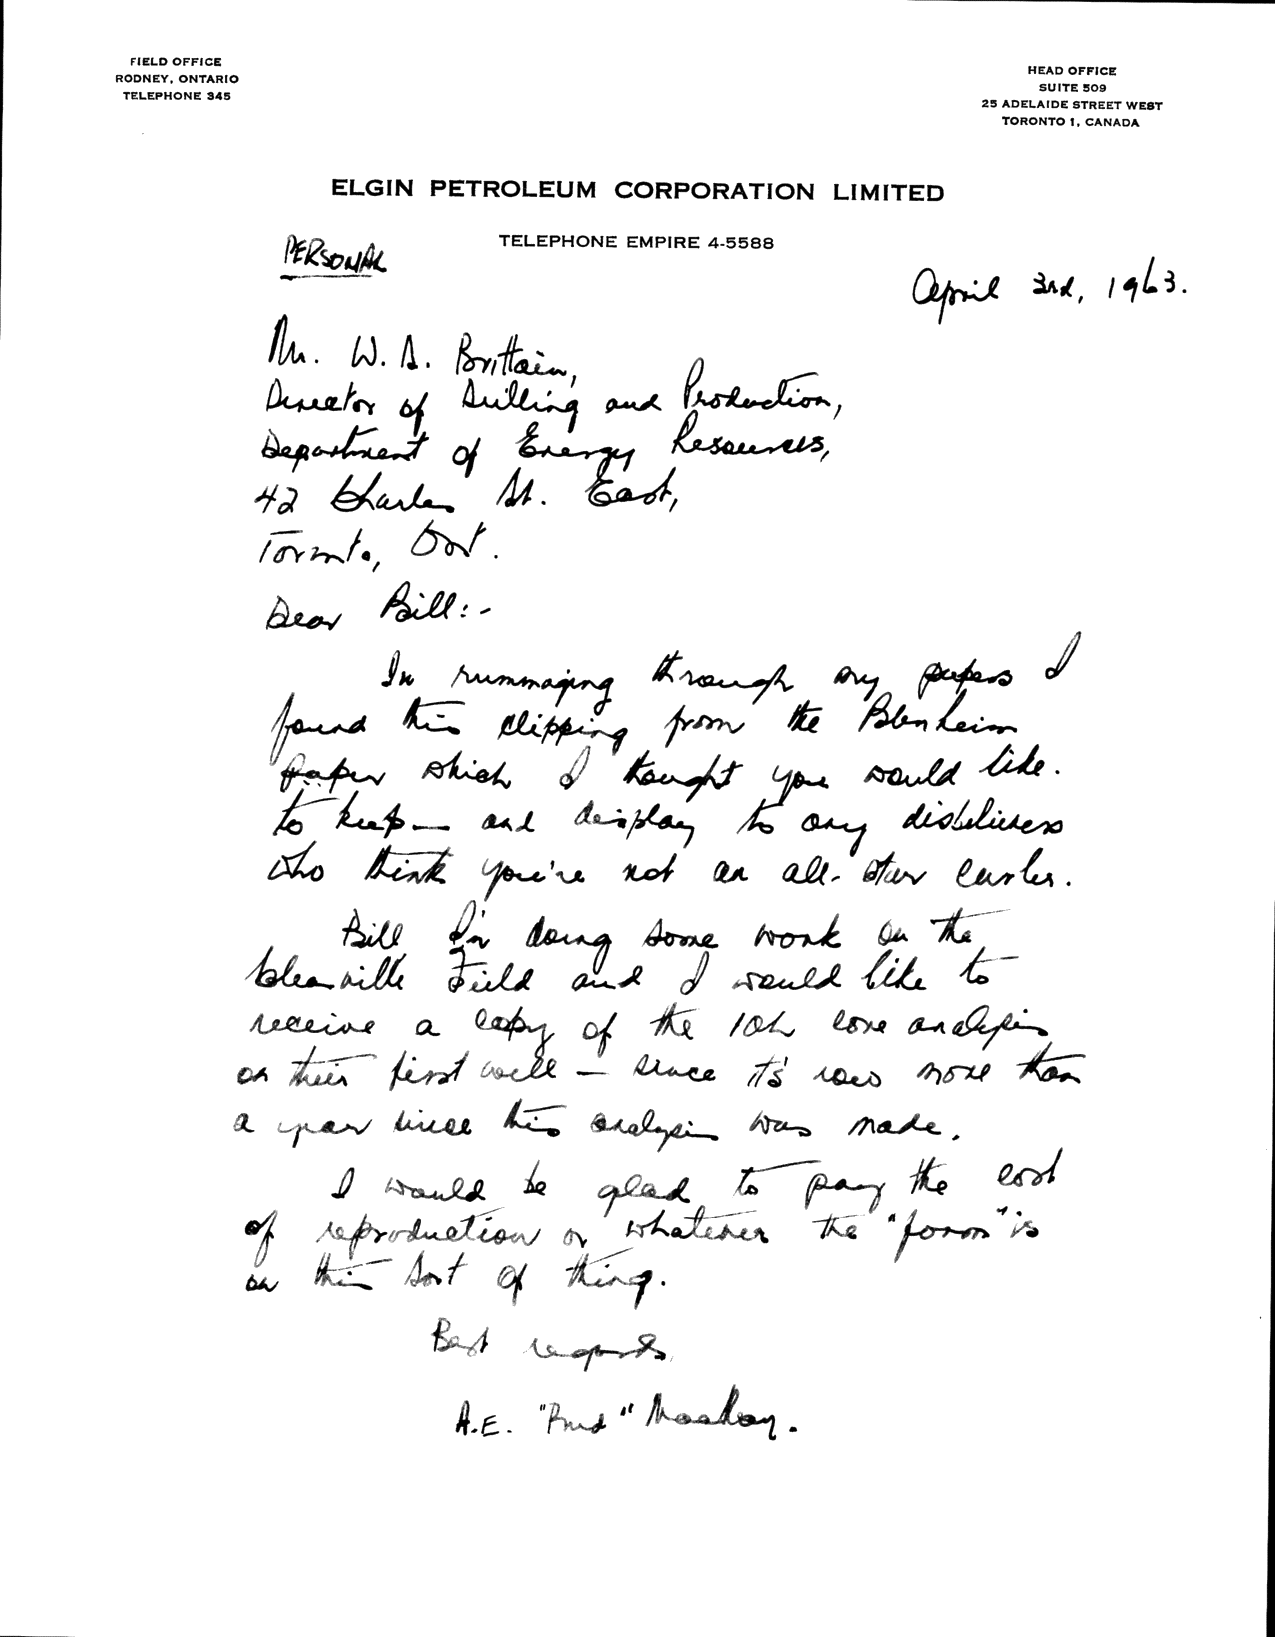 FIELD OFFICE
RODNEY, ONTARIO
TELEPHONE 345
HEAD OFFICE
SUITE 509
25 ADELAIDE STREET WEST
TORONTO 1, CANADA
ELGIN PETROLEUM CORPORATION LIMITED
TELEPHONE EMPIRE 4-5588
PERSONAL
April 3rd, 1963.
Mr. W. D. Brittain,
Director of Drilling and Production,
Department of Energy Resources,
42 Charles St. East,
Toronto, Ont.
Dear Bill:-
In rummaging through my papers I
found this clipping from the Blenheim
paper which I thought you would like.
to keep — and display to any disbelievers
who think you're not an all-star curler.
Bill I'm doing some work on the
Clearville Field and I would like to
receive a copy of the core analysis
on their first well — since it's now more than
a year since this analysis was made.
I would be glad to pay the cost
of reproduction or whatever the "form" is
on this sort of thing.
Best regards
A.E. Mackay.